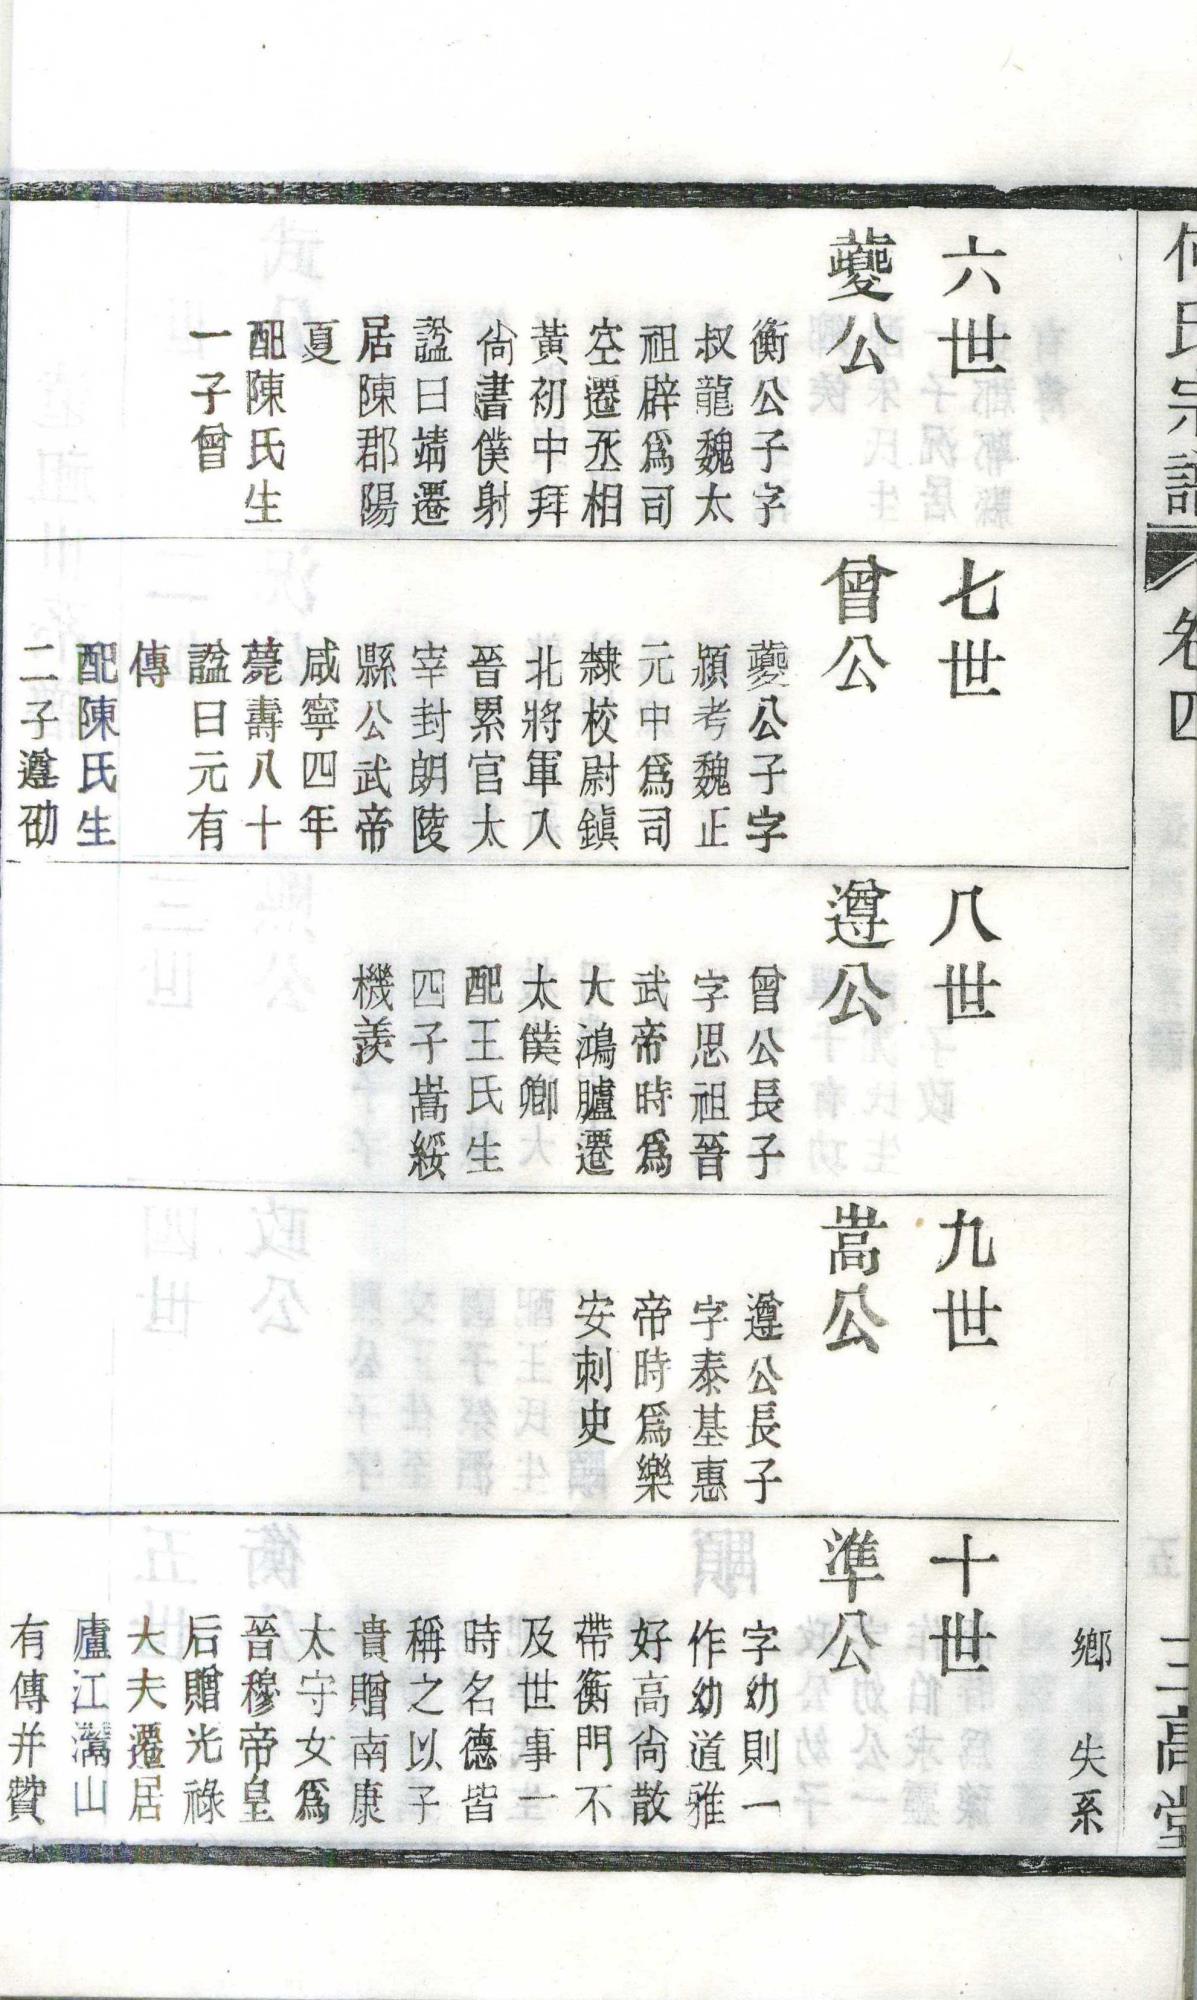 何氏宗譜
卷四
三高堂
鄉 失系
六世
夔公
衡公子字
叔龍魏太
祖辟為司
空遷丞相
黃初中拜
尙書僕射
諡曰靖遷
居陳郡陽
夏
配陳氏生
一子曾
七世
曾公
夔公子字
頴考魏正
元中為司
隸校尉鎮
北將軍入
晉累官太
宰封朗陵
縣公武帝
咸寧四年
薨壽八十
諡曰元有
傳
配陳氏生
二子遵劭
八世
遵公
曾公長子
字思祖晉
武帝時為
大鴻臚遷
太僕卿
配王氏生
四子嵩綏
機羨
九世
嵩公
遵公長子
字泰基惠
帝時爲樂
安刺史
十世
準公
字幼則一
作幼道雅
好高尙散
帶衡門不
及世事一
時名德皆
稱之以子
貴贈南康
太守女爲
晉穆帝皇
后贈光祿
大夫遷居
廬江灊山
有傳并贊